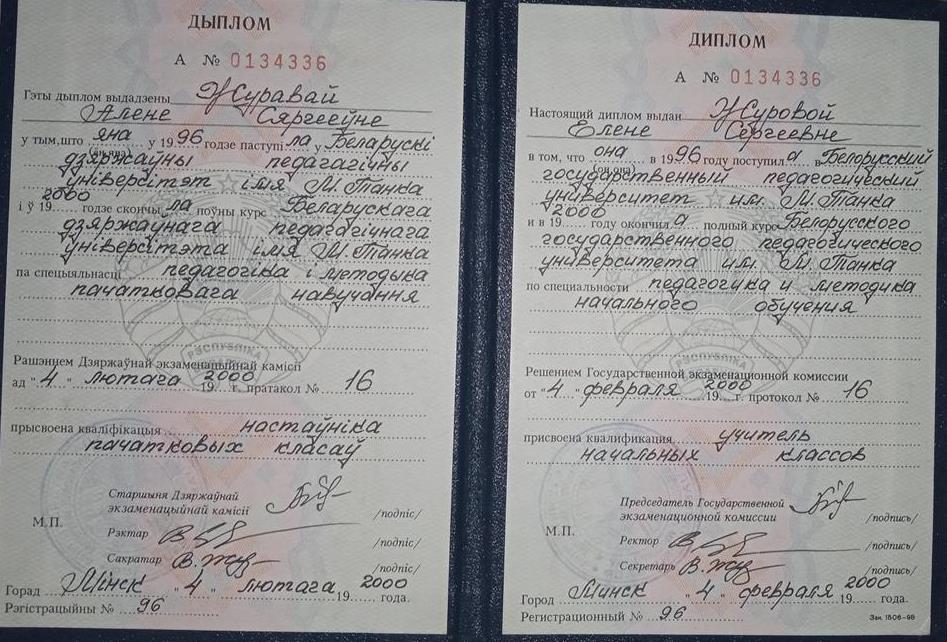 ДЫПЛОМ
А № 0134336
Гэты дыплом выдадзены Журавай
Алене Сяргееўне
у тым, што яна у 1996 годзе паступіла у Беларускі
дзяржаўны педагагічны
універсітэт імя М. Танка
і ў 19 2000 годзе скончыла поўны курс Беларускага
дзяржаўнага педагагічнага
універсітэта імя М. Танка
па спецыяльнасці педагогіка і методыка
пачатковага навучання
РЭСПУБЛІКА
Рашэннем Дзяржаўнай экзаменацыйнай камісіі
ад "4" лютага 2000 19 г. пратакол № 16
прысвоена кваліфікацыя настаўніка
пачатковых класаў
Старшыня Дзяржаўнай
экзаменацыйнай камісіі
/подпіс/
М.П.
Рэктар
/подпіс/
Сакратар
/подпіс/
Горад Мінск "4" лютага 2000 19 года.
Рэгістрацыйны № 96
ДИПЛОМ
А № 0134336
Настоящий диплом выдан Журовой
Елене Сергеевне
в том, что она в 1996 году поступила в Белорусский
государственный педагогический
университет им. М. Танка
и в 19 2000 году окончила полный курс Белорусского
государственного педагогического
университета им. М. Танка
по специальности педагогика и методика
начального обучения
РЭСПУБЛІКА
Решением Государственной экзаменационной комиссии
от "4" февраля 2000 19 г. протокол № 16
присвоена квалификация учитель
начальных классов
Председатель Государственной
экзаменационной комиссии
/подпись/
М.П.
Ректор
/подпись/
Секретарь
/подпись/
Город Минск "4" февраля 2000 19 года.
Регистрационный № 96
Зак. 1506-98